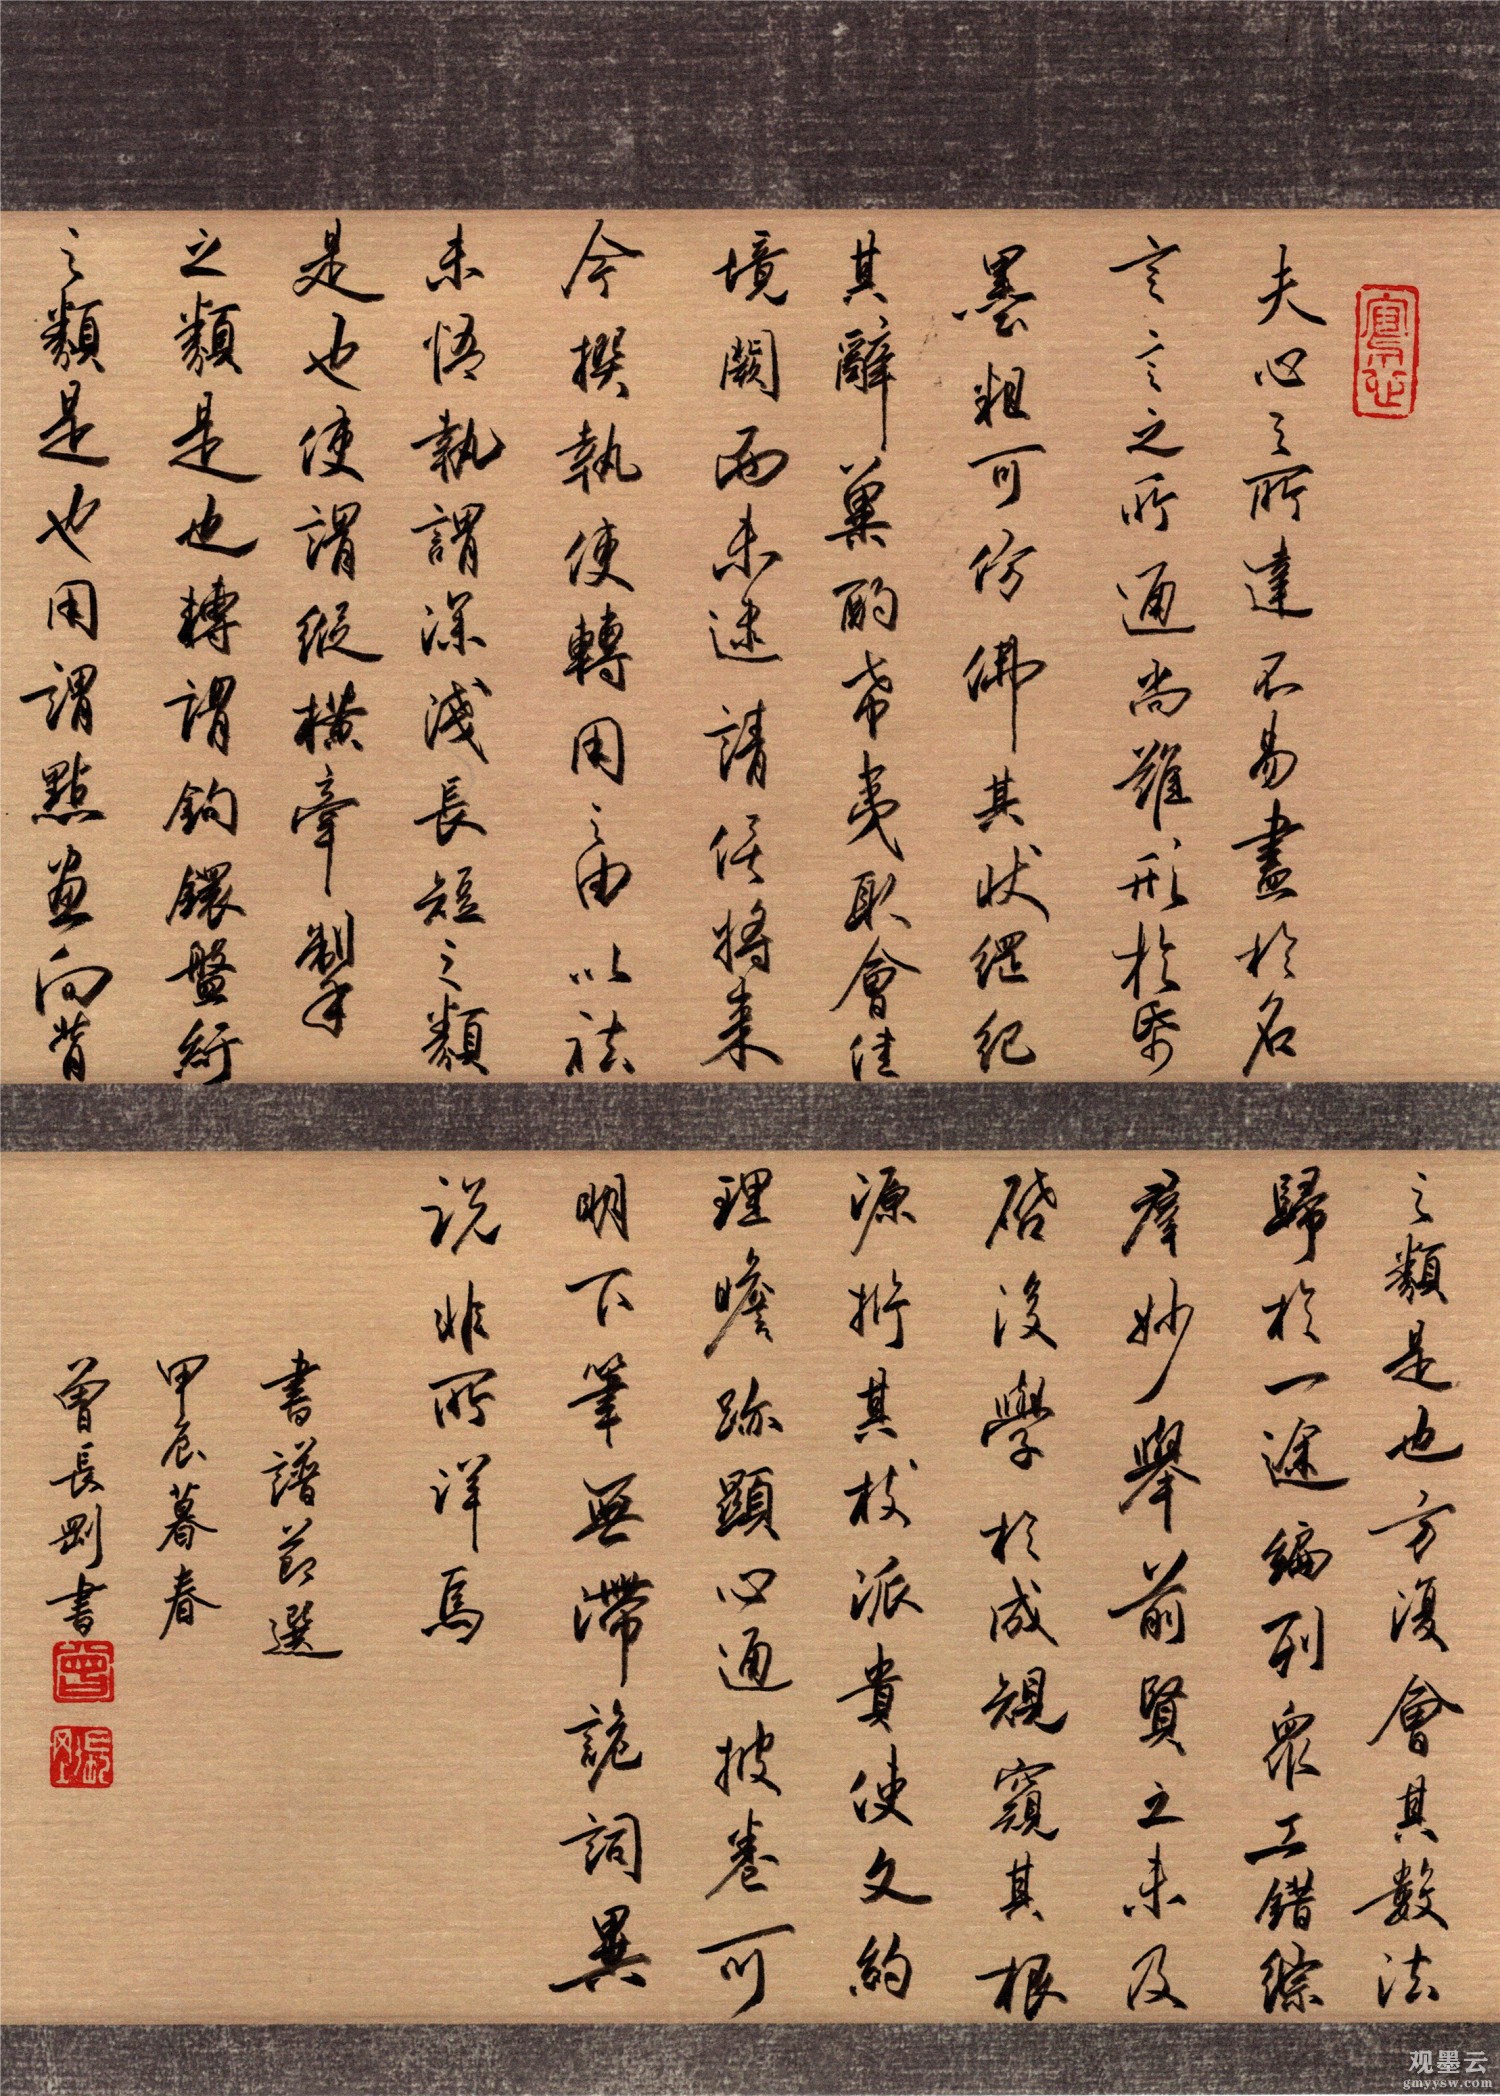 夫心之所達不易盡於名
言言之所通尚難形於帋
墨粗可仿佛其狀綱紀
其辭冀酌希夷取會佳
境闕而未逮請俟將來
今撰執使轉用之由以祛
未悟執謂深淺長短之類
是也使謂縱橫牽掣
之類是也轉謂鉤鐶盤紆
之類是也用謂點畫向背
之類是也方復會其數法
歸於一途編列眾工錯綜
群妙舉前賢之未及
啓後學於成規窺其根
源析其枝派貴使文約
理贍跡顯心通披卷可
明下筆無滯詭詞異
説非所詳焉
書譜節選
甲辰暮春
曾長剛書
观墨云
gmyysw.com